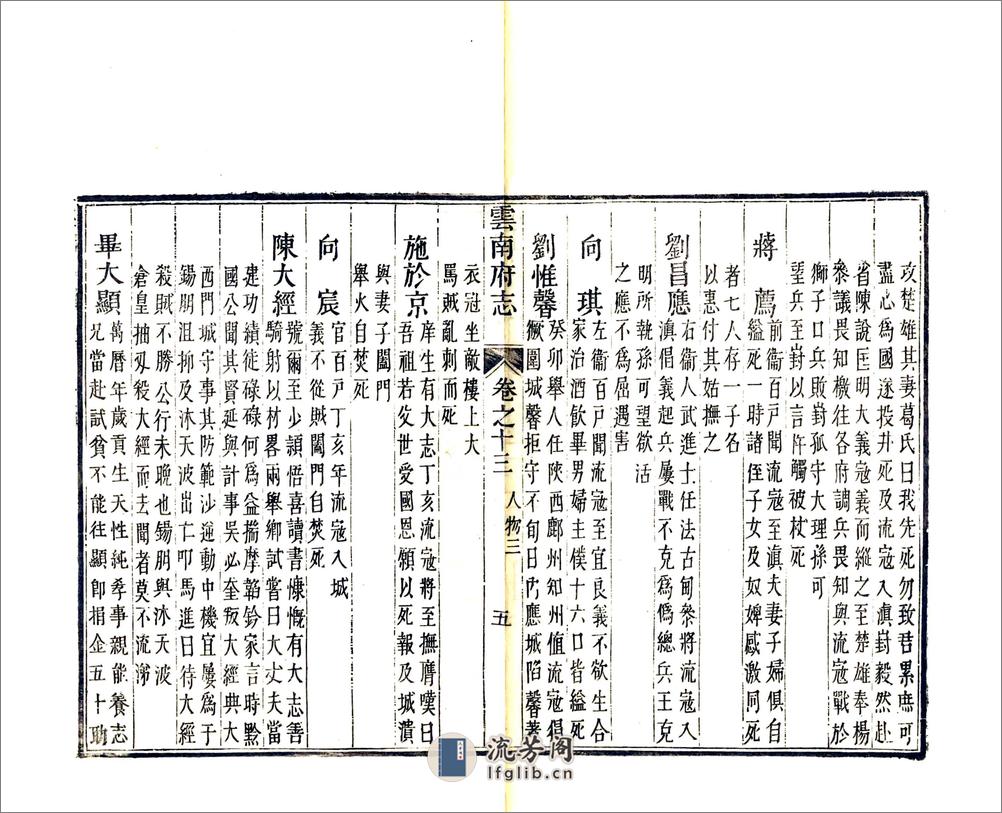 攻楚雄其妻葛氏曰我先死勿致君累庶可
盡心爲國遂投井死及流寇入滇封毅然赴
省陳說匡明大義寇義而縱之至楚雄奉楊
叅議畏知檄往各府調兵畏知與流寇戰於
獅子口兵敗封孤守大理孫可
望兵至封以言阼觸被杖死
蔣　薦前衞百戸聞流寇至滇夫妻子婦俱自
縊死一時諸侄子女及奴婢感激同死
者七人存一子名
以惠付其姑撫之
劉昌應右衞人武進士任法古甸叅將流寇入
滇其倡義起兵屢戰不克爲僞總兵王克
明所執孫可望欲活
之應不爲屈遇害
向　琪左衞百戸聞流寇至宜良義不欲生合
家治酒飲畢男婦主僕十六口皆縊死
劉惟馨癸卯舉人任陝西鄜州知州值流寇倡
厥圍城馨拒守不旬日内應城陷馨著
雲南府志　卷之十三　人物三　五
衣冠坐敵樓上大
罵賊亂刺而死
施於京庠生有大志丁亥流寇將至撫膺嘆曰
吾祖若父世受國恩願以死報及城潰
與妻子闔門
舉火自焚死
向　宸官百戸丁亥年流寇入城
義不從賊闔門自焚死
陳大經號爾至少頴悟喜讀書慷慨有大志善
騎射以材畧兩舉鄉試嘗曰大丈夫當
建功績徒碌碌何爲益揣摩韜鈐家言時黔
國公聞其賢延與計事吳必奎叛大經典大
西門城守事其防範沙逆動中機宜屢爲于
錫朋沮抑及沐天波出亡叩馬進曰待大經
殺賊不勝公行未晩也錫朋與沐天波
倉皇抽刄殺大經而去聞者莫不流涕
畢大顯萬曆年歲貢生天性純孝事親能養志
兄當赴試貧不能往顯即捐金五十助
流芳阁
lfglib.cn